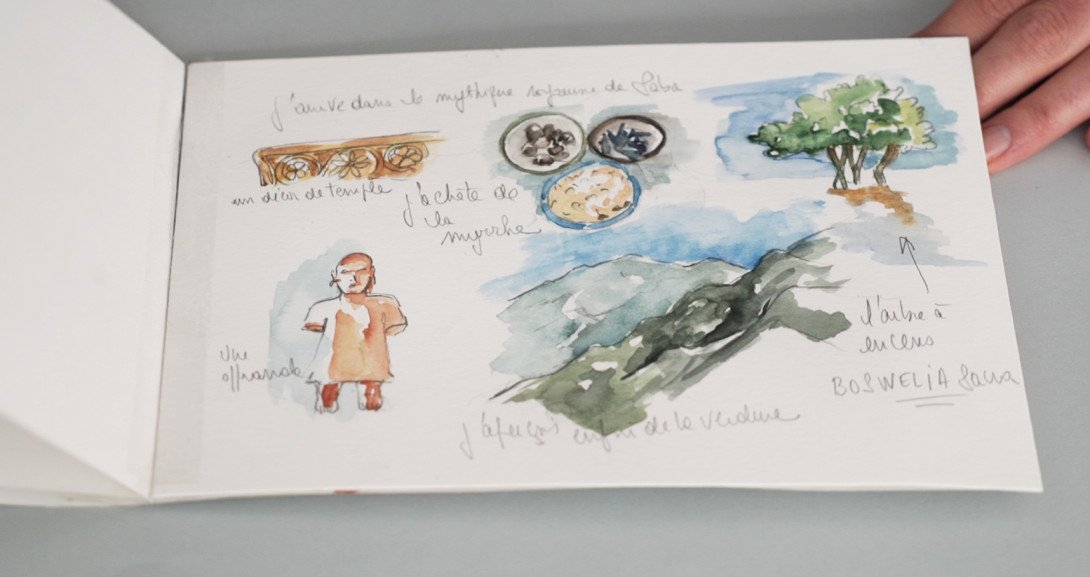 j'arrive dans le mythique royaume de Saba
un décor de temple
j'achète de
la
myrrhe
une
offrande
j'aperçois enfin de la verdure
l'arbre à
encens
BOSWELIA Sacra